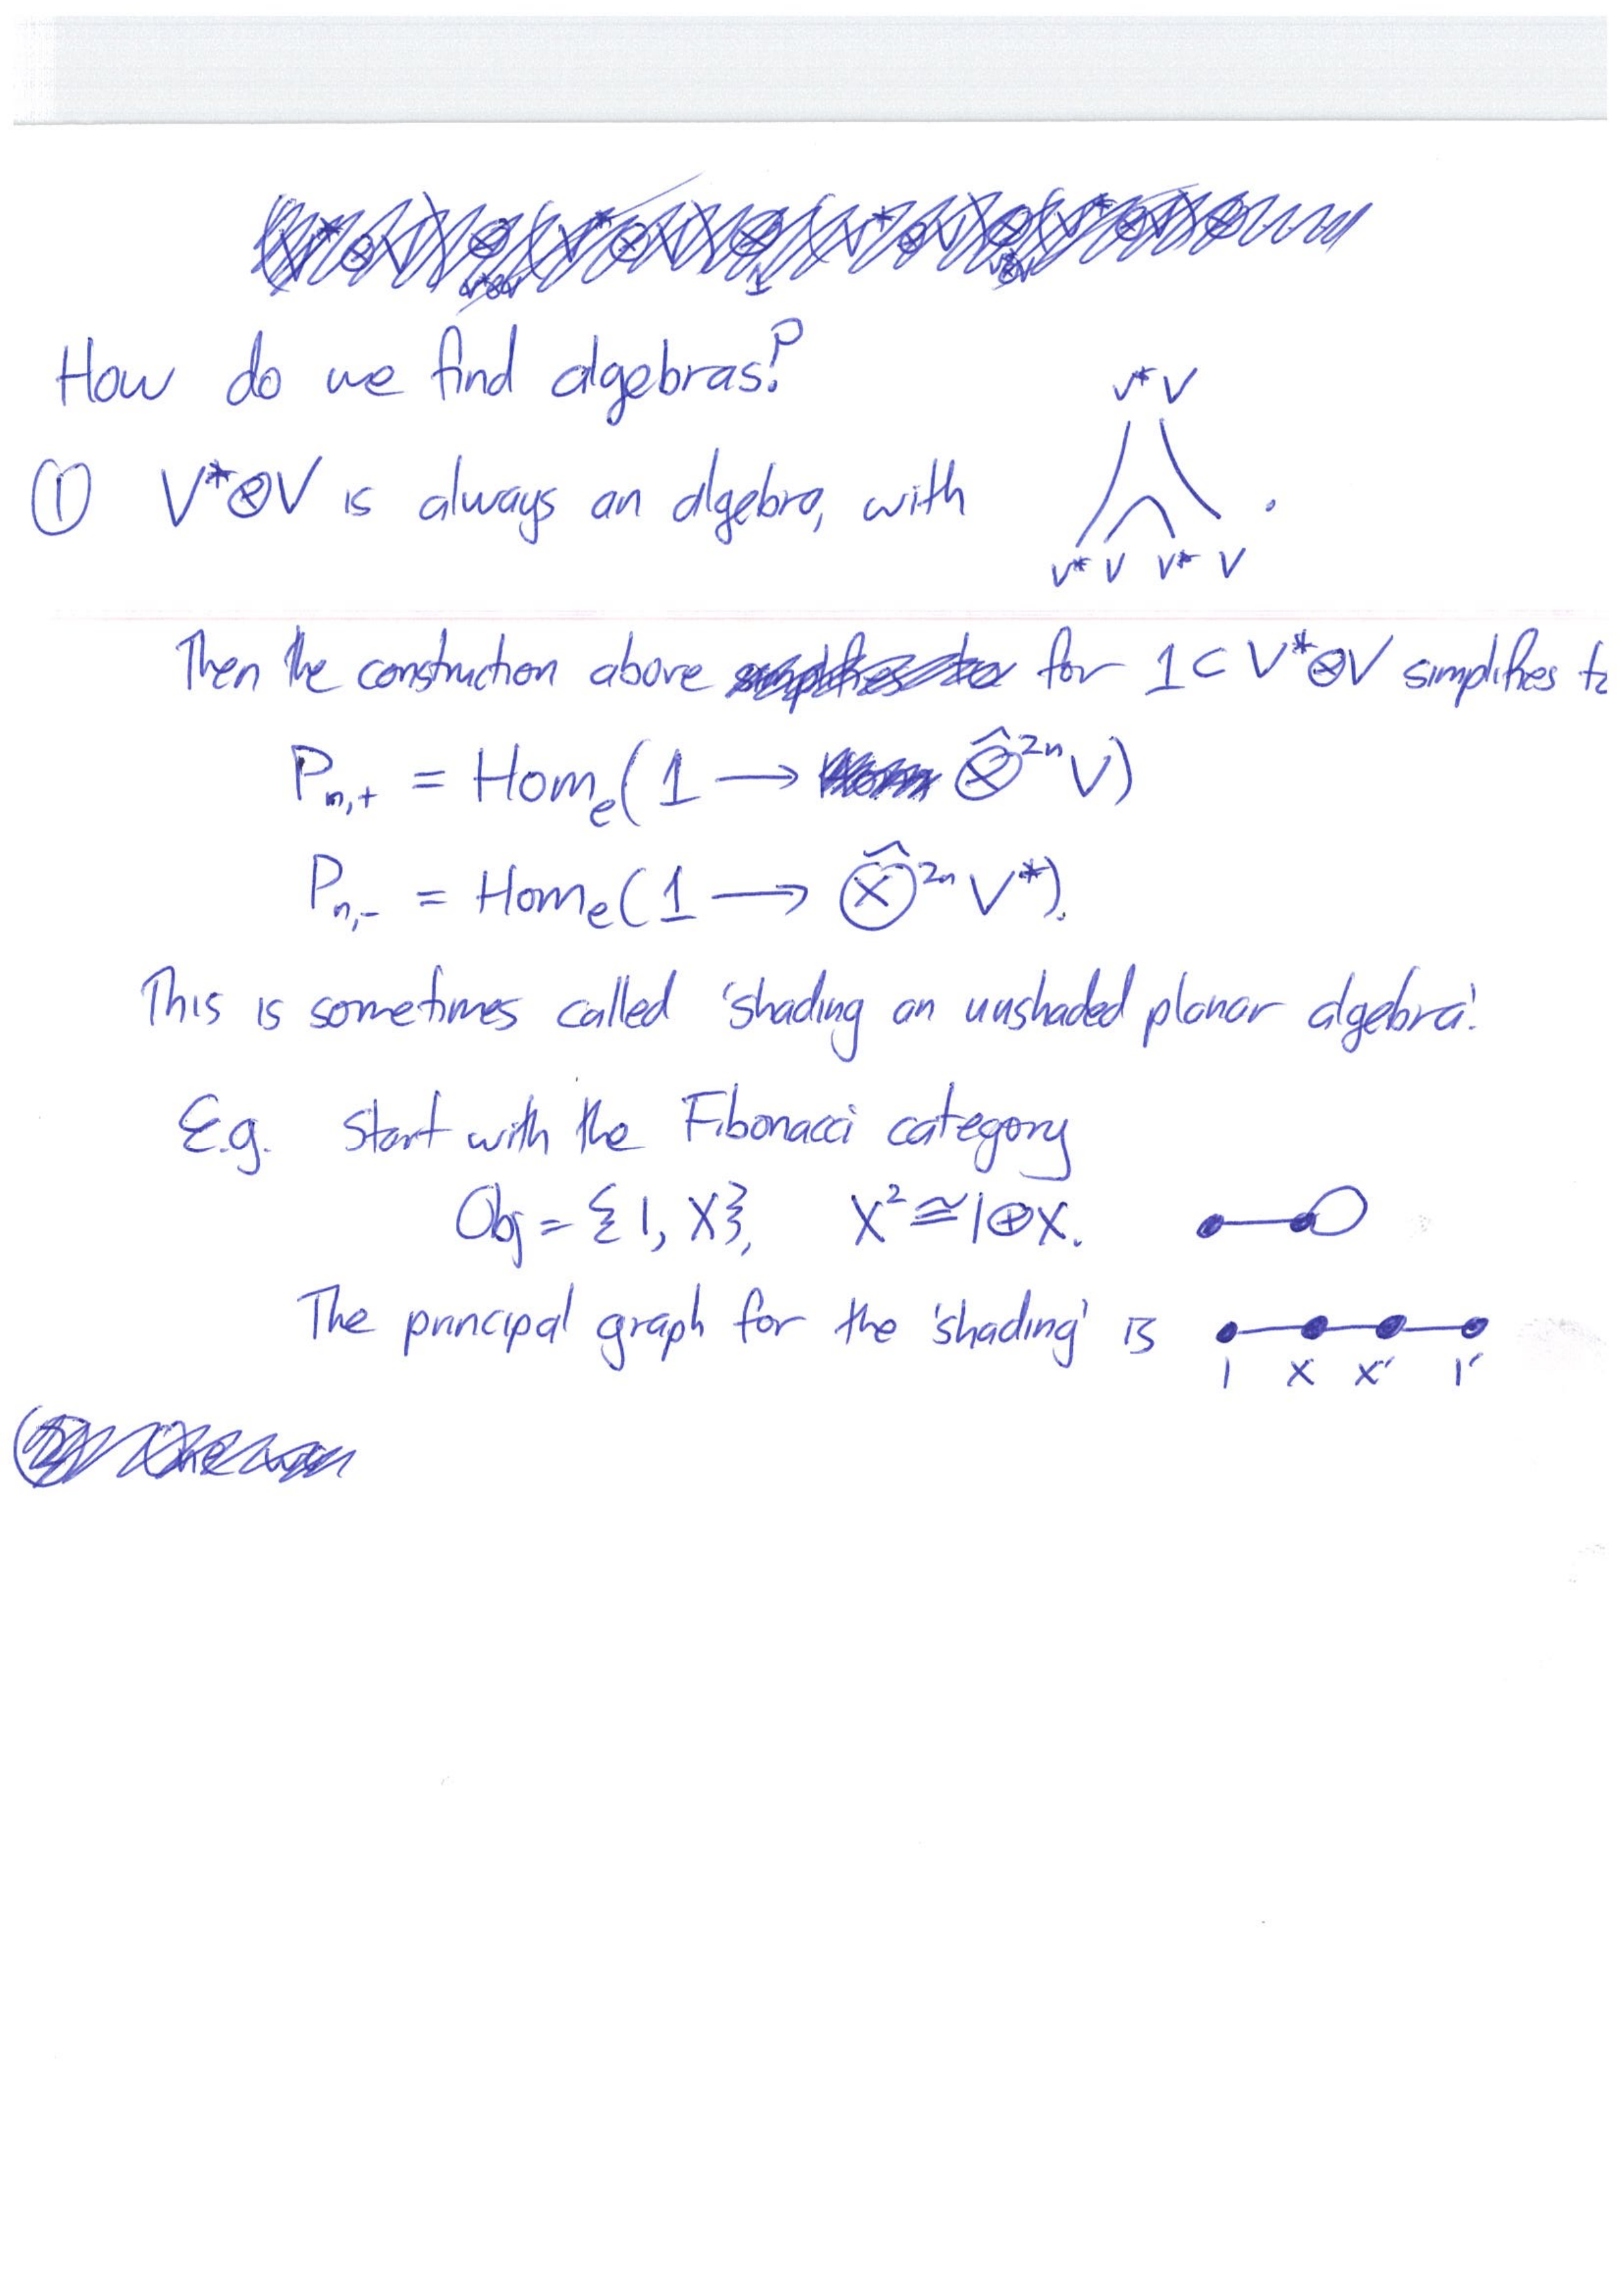 How do we find algebras?
V* V
① V*⊗V is always an algebra, with .
V* V V* V
Then the construction above for 1 ⊂ V*⊗V simplifies to
P_{n,+} = Hom_e(1 → ⊗̂^{2n} V)
P_{n,-} = Hom_e(1 → ⊗̂^{2n} V*).
This is sometimes called 'shading an unshaded planar algebra'.
E.g. start with the Fibonacci category
Obj = {1, X}, X² ≅ 1⊕X.
The principal graph for the 'shading' is
1 X X' 1'